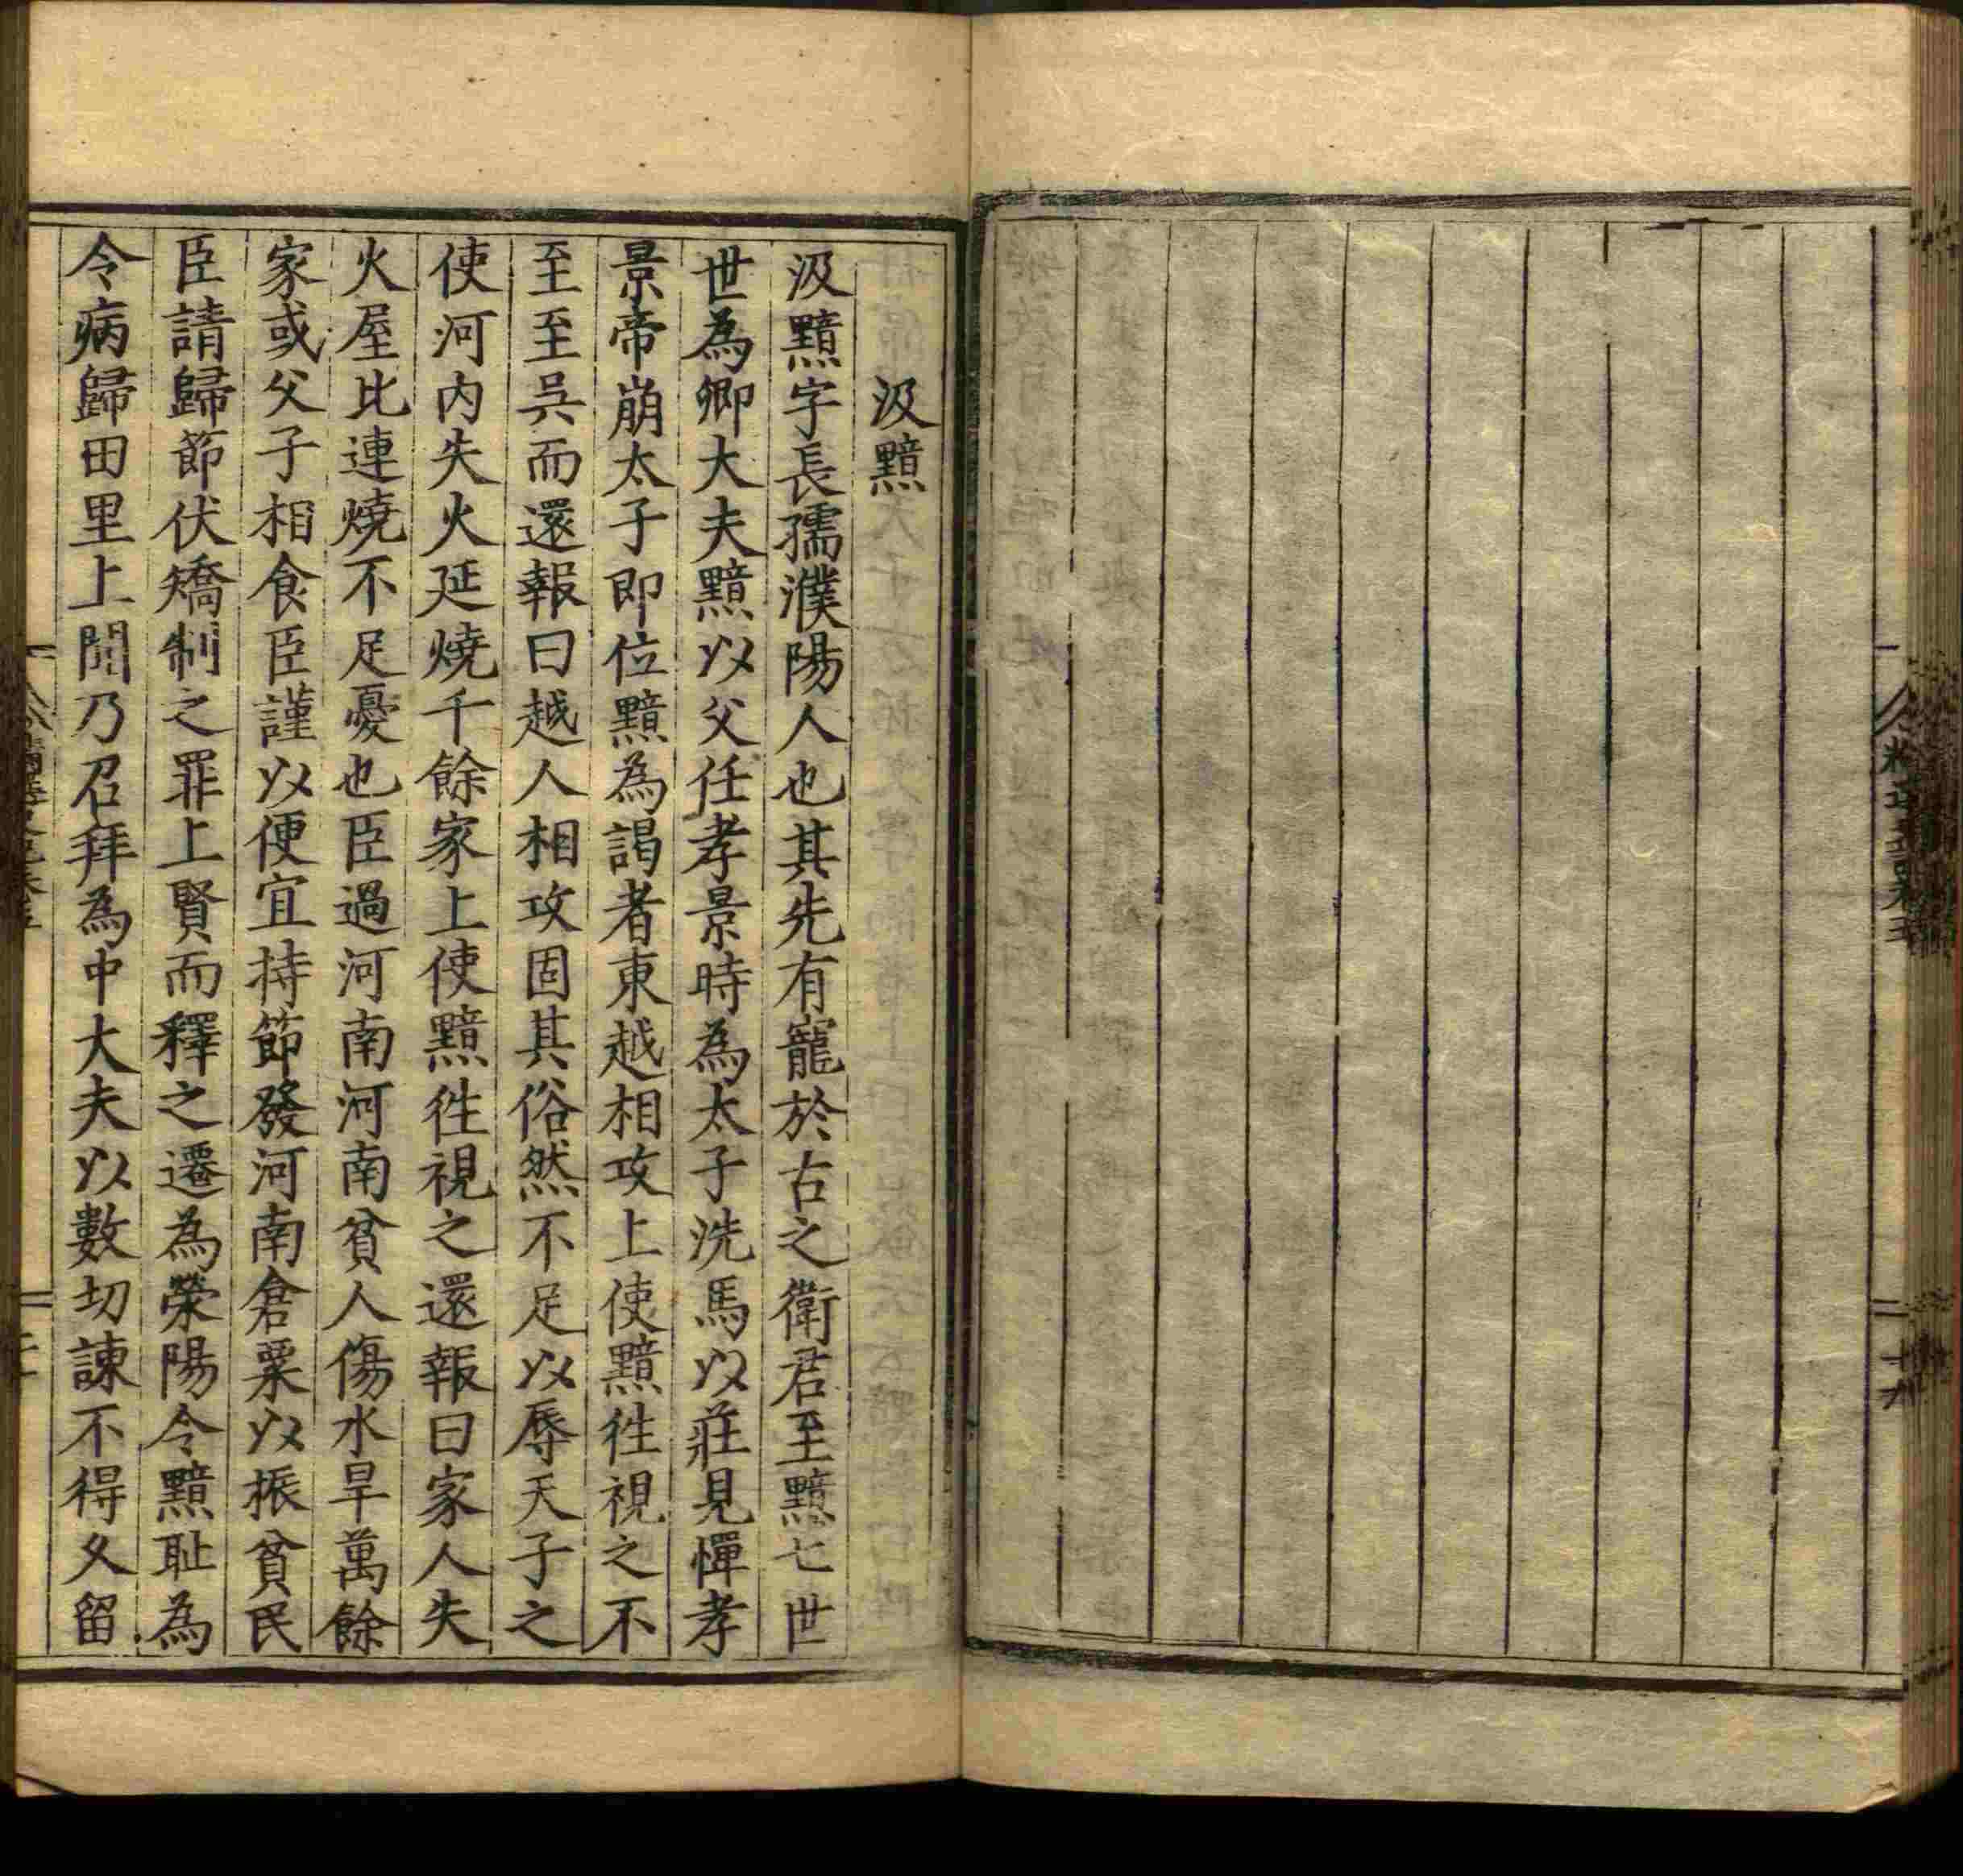 汲黯
汲黯字長孺濮陽人也其先有寵於古之衛君至黯七世
世為卿大夫黯以父任孝景時為太子洗馬以莊見憚孝
景帝崩太子即位黯為謁者東越相攻上使黯徃視之不
至至吳而還報曰越人相攻固其俗然不足以辱天子之
使河内失火延燒千餘家上使黯徃視之還報曰家人失
火屋比連燒不足憂也臣過河南河南貧人傷水旱萬餘
家或父子相食臣謹以便宜持節發河南倉粟以振貧民
臣請歸節伏矯制之罪上賢而釋之遷為滎陽令黯耻為
令病歸田里上聞乃召拜為中大夫以數切諫不得久留